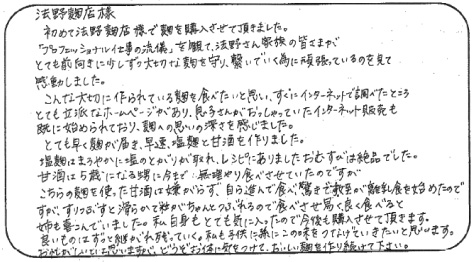 法野麹店様
初めて法野麹店様で麹を購入させて頂きました。
「プロフェッショナル仕事の流儀」を観て、法野さん家族の皆さまが
とても前向きに少しずつ大切な麹を守り、繋いでいく為に頑張っているのを見て
感動しました。
こんな大切に作られている麹を食べたいと思い、すぐにインターネットで調べたところ
とても立派なホームページがあり、良子さんがおっしゃっていたインターネット販売も
既に始められており、麹への思いの深さを感じました。
とても早く麹が届き、早速、塩麹と甘酒を作りました。
塩麹はまろやかに塩のとがりが取れ、レシピにありましたおむすびは絶品でした。
甘酒は5歳になる甥に今まで無理やり食べさせていたのですが
こちらの麹を使った甘酒は嫌がらず、自ら進んで食べ驚き
が離乳食を始めたので
すが、すりつぶすと滑らかで粒がちゃんとつぶれるので食べさせ易く良く食べると
姉も喜こんでいました。私自身もとても気に入ったので今後も購入させて頂きます。
良いものはずっと継がれ残っていく。私も子供に孫にこの味をつなげていきたいと思います。
お忙しいとは思いますが、どうぞお体に気をつけて、おいしい麹を作り続けて下さい。